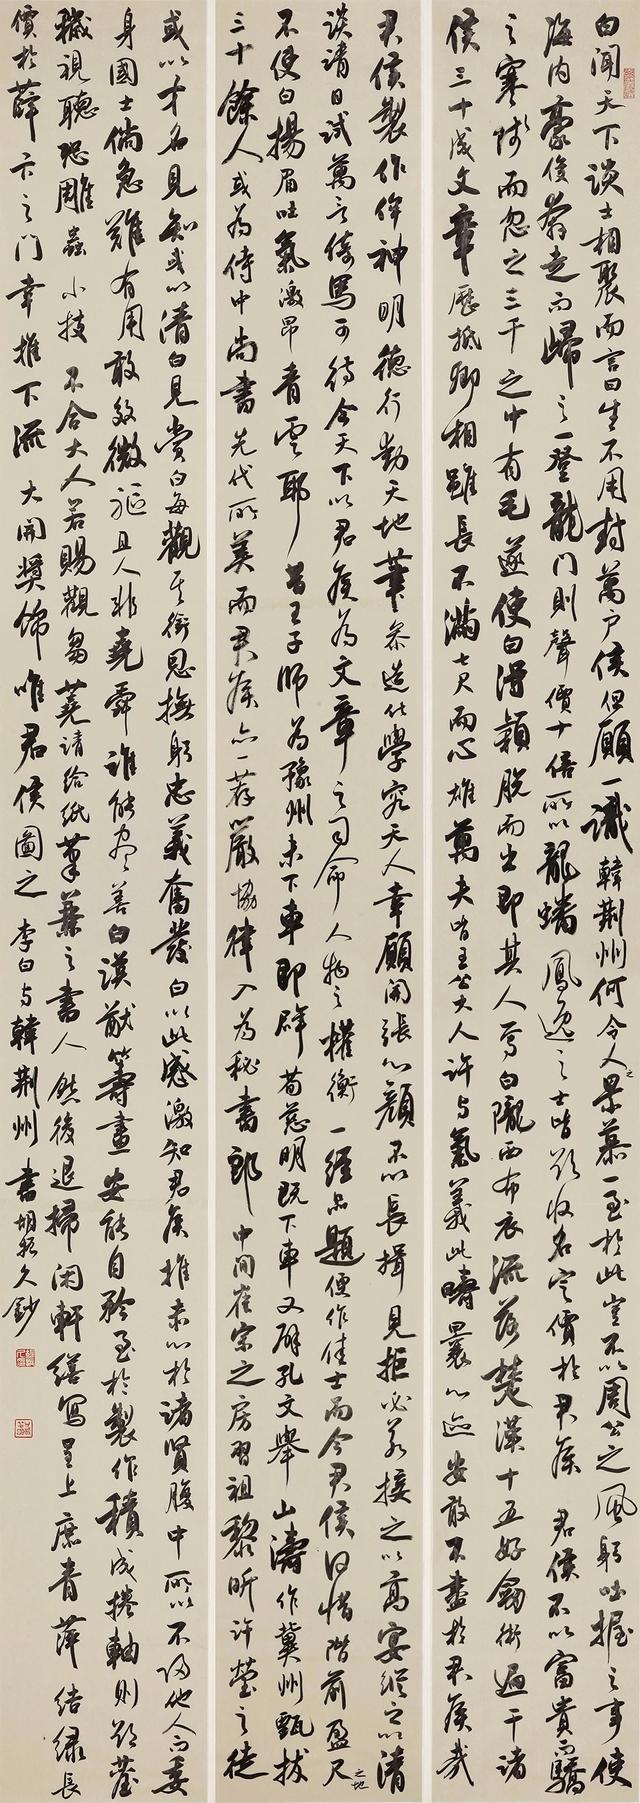 白聞天下談士相聚而言曰生不用封萬戶侯但願一識韓荊州何令人之景慕一至於此豈不以周公之風躬吐握之事使
海內豪俊奔走而歸之一登龍門則聲價十倍所以龍蟠鳳逸之士皆欲收名定價於君侯君侯不以富貴而驕
之寒賤而忽之三千之中有毛遂使白得穎脫而出即其人焉白隴西布衣流落楚漢十五好劍術遍干諸
侯三十成文章歷抵卿相雖長不滿七尺而心雄萬夫皆王公大人許與氣義此疇曩心迹安敢不盡於君侯哉
君侯製作侔神明德行動天地筆參造化學究天人幸願開張心顏不以長揖見拒必若接之以高宴縱之以清
談請日試萬言倚馬可待今天下以君侯為文章之司命人物之權衡一經品題便作佳士而今君侯何惜階前盈尺之地
不使白揚眉吐氣激昂青雲耶昔王子師為豫州未下車即辟荀慈明既下車又辟孔文舉山濤作冀州甄拔
三十餘人或為侍中尚書先代所美而君侯亦一薦嚴協律入為秘書郎中間崔宗之房習祖黎昕許瑩之徒
或以才名見知或以清白見賞白每觀其銜恩撫躬忠義奮發白以此感激知君侯推赤心於諸賢腹中所以不歸他人而委
身國士倘急難有用敢效微軀且人非堯舜誰能盡善白謨猷籌畫安能自矜至於製作積成捲軸則欲塵
穢視聽恐雕蟲小技不合大人若賜觀芻蕘請給紙筆兼之書人然後退掃閑軒繕寫呈上庶青萍結綠長
價於薛卞之門幸推下流大開獎飾唯君侯圖之李白與韓荊州書胡久鈔